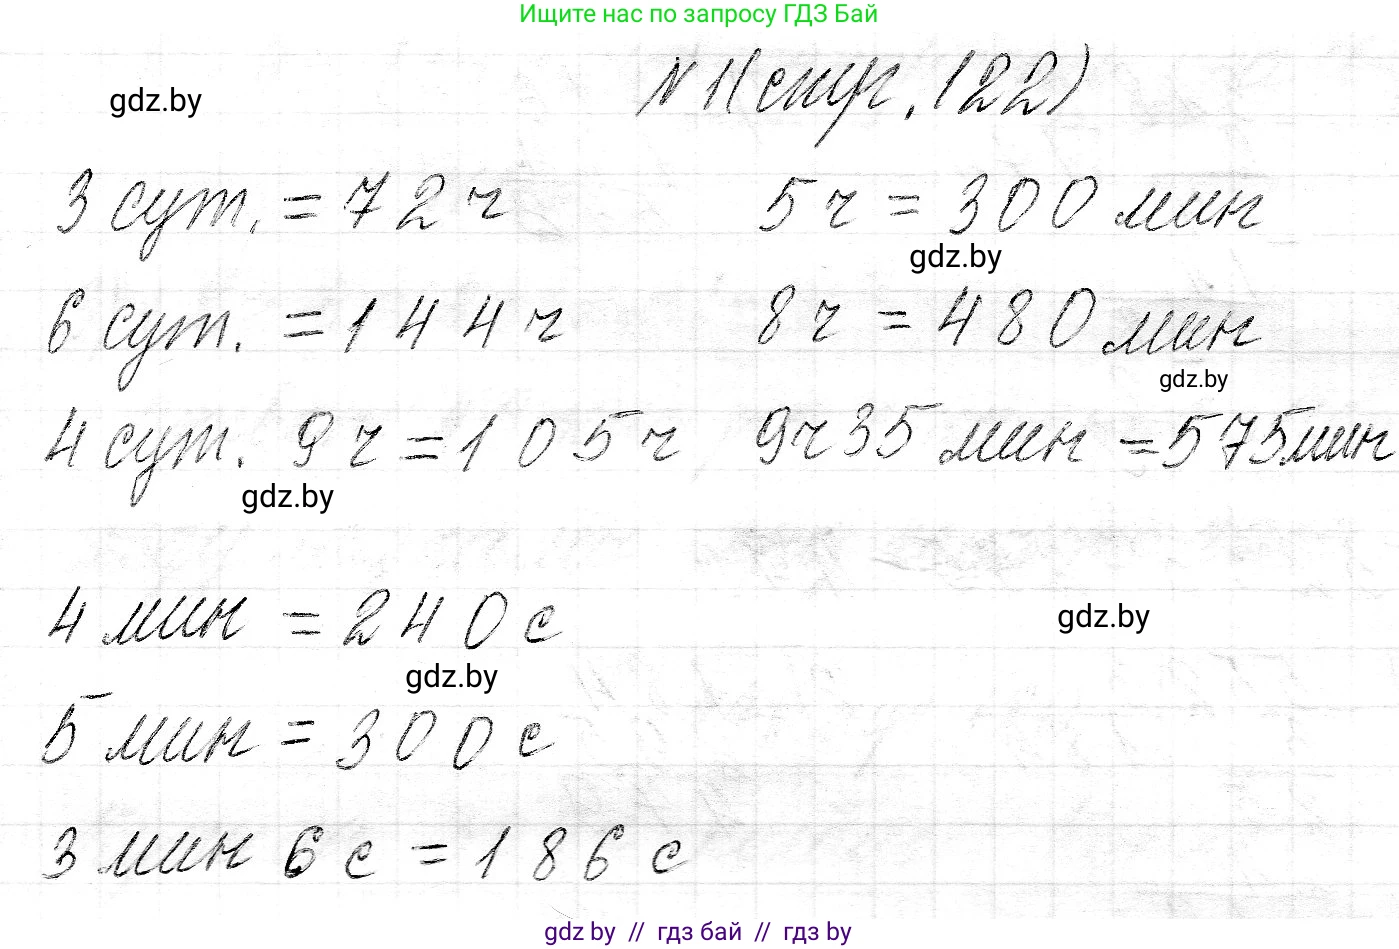 Ищите нас по запросу ГДЗ Бай
№1(стр.122)
gdz.by
3 сут. = 72 ч 5 ч = 300 мин
gdz.by
6 сут. = 144 ч 8 ч = 480 мин
gdz.by
4 сут. 9 ч = 105 ч 9 ч 35 мин = 575 мин
gdz.by
4 мин = 240 с
gdz.by
gdz.by
5 мин = 300 с
3 мин 6 с = 186 с
gdz by // гдз бай // гдз by